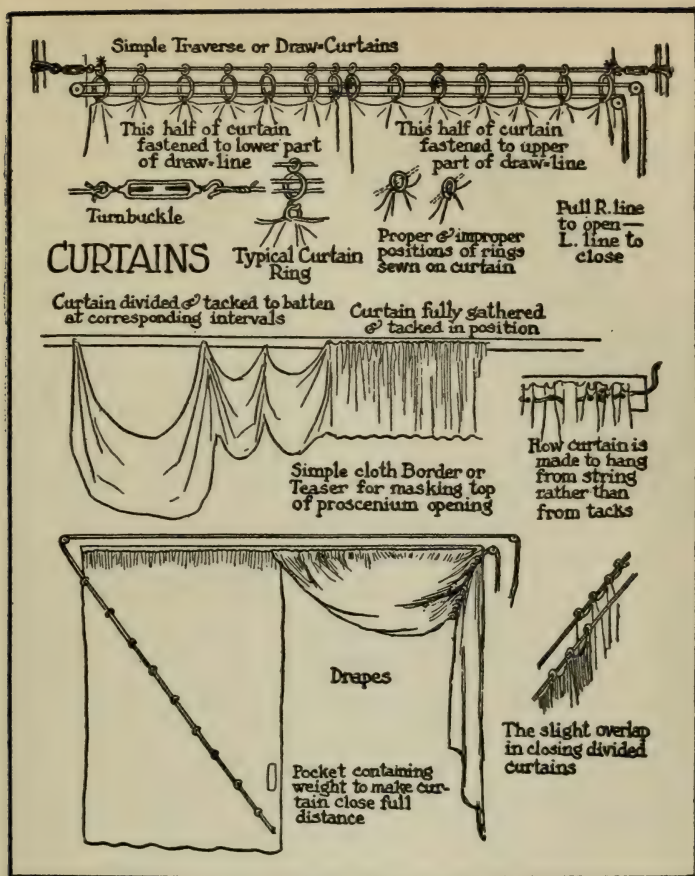 Simple Traverse or Draw-Curtains
This half of curtain
fastened to lower part
of draw-line
This half of curtain
fastened to upper
part of draw-line
Turnbuckle
Typical Curtain
Ring
Proper & improper
positions of rings
sewn on curtain
Pull R. line
to open—
L. line to
close
CURTAINS
Curtain divided & tacked to batten
at corresponding intervals
Curtain fully gathered
& tacked in position
Simple cloth Border or
Teaser for masking top
of proscenium opening
How curtain is
made to hang
from string
rather than
from tacks
Drapes
Pocket containing
weight to make cur-
tain close full
distance
The slight overlap
in closing divided
curtains